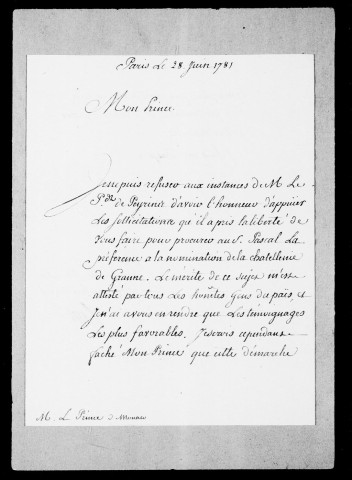 Paris Le 28 Juin 1781
Mon Prince
Je ne puis refuser aux instances de M Le
P.dt de Peyrins d'avoir l'honneur d'appuier
Les sollicitations qu'il a pris la liberté de
Vous faire pour procurer au S. Pascal La
préference a la nomination de la chatellenie
de Granne. Le mérite de ce sujet m'est
attesté par tous Les honêtes Gens du païs, et
Je n'ai a vous en rendre que Les témoignages
Les plus favorables. Je serois cependant
faché Mon Prince que cette démarche
M. L Prince d Monaco